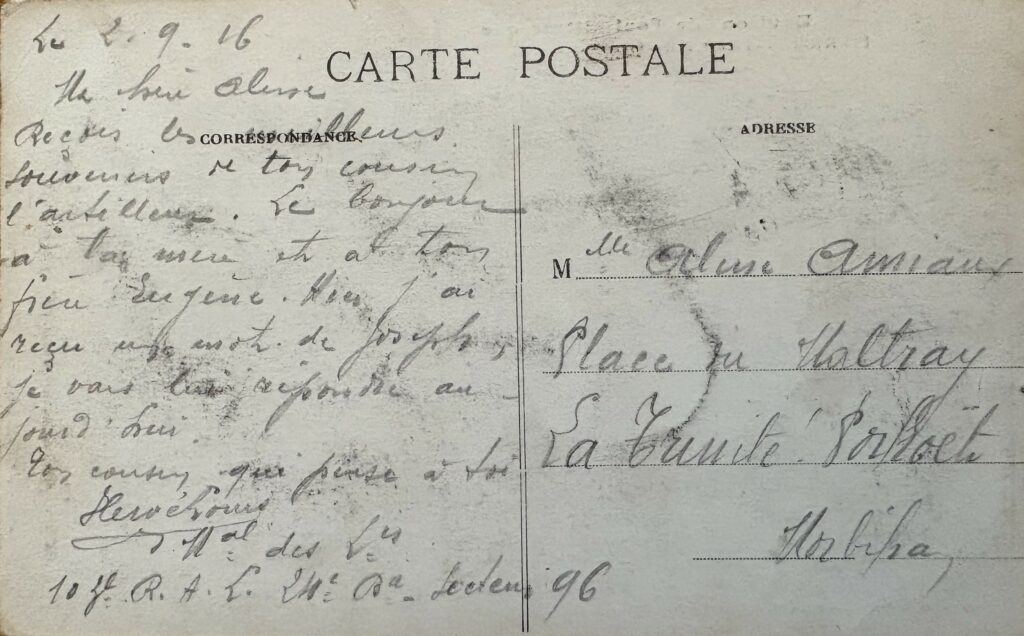 Le 2. 9. 16
CARTE POSTALE
Ma chère Alerse
CORRESPONDANCE
Reçois les meilleurs
souvenirs de ton cousin
l'artilleur. Le bonjour
à ta mère et à ton
frère Eugène. Hier j'ai
reçu un mot de Joseph,
je vais lui répondre au-
jourd'hui.
Ton cousin qui pense à toi
Hervé
Mal des Lis
10 R. A. L. 24e Bie Secteur 96
ADRESSE
Mlle
Place du Maltray
La Trinité Porhoët
Morbihan